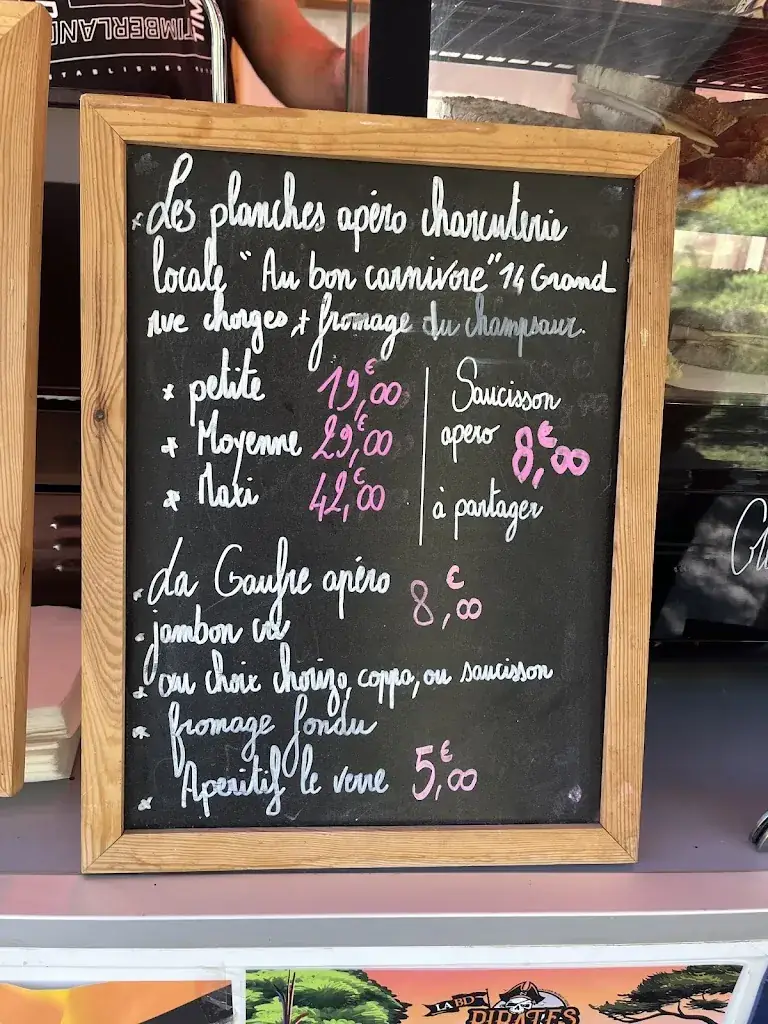 TIMBERLAND
TIM
ESTABLISHED
* Les planches apéro charcuterie
locale "Au bon carnivore" 14 Grand
rue chorges, + fromage du champsaur.
* petite 19,€00
* Moyenne 29,€00
* Maxi 42,€00
Saucisson
apero 8,€00
à partager
* La Gaufre apéro 8,€00
* jambon cru
* ou choix chorizo, coppa, ou saucisson
* fromage fondu
* Aperitif le verre 5,€00
LA BD
PIRATES